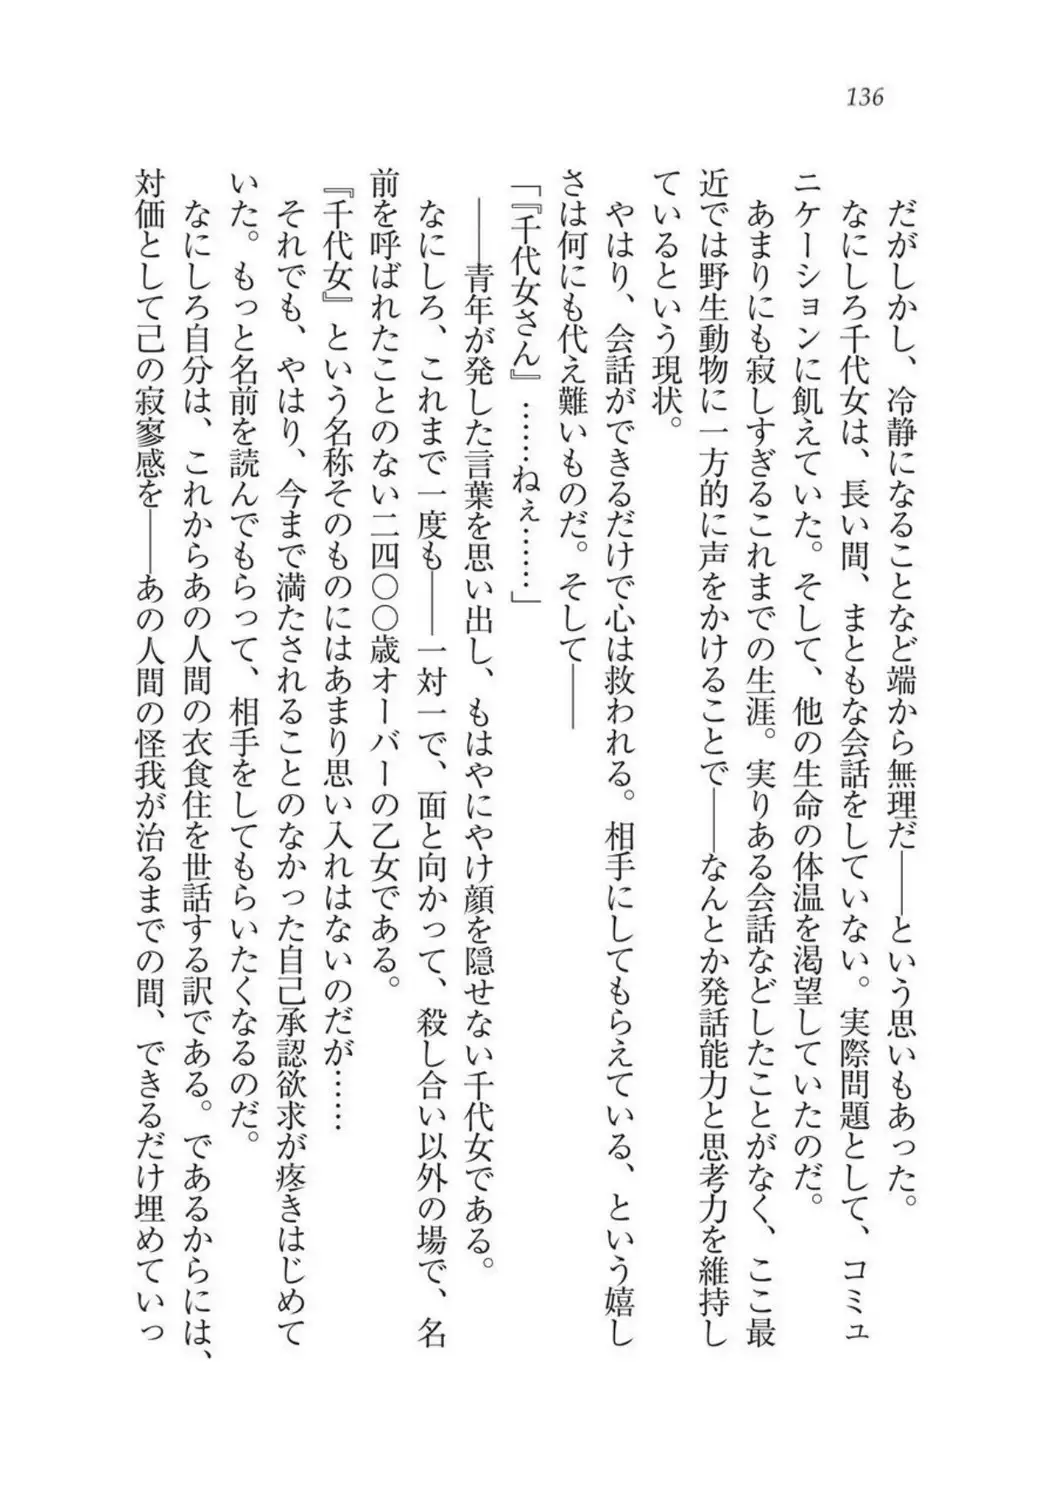 136
だがしかし、冷静になることなど端から無理だ――という思いもあった。
なにしろ千代女は、長い間、まともな会話をしていない。実際問題として、コミュ
ニケーションに飢えていた。そして、他の生命の体温を渇望していたのだ。
あまりにも寂しすぎるこれまでの生涯。実りある会話などしたことがなく、ここ最
近では野生動物に一方的に声をかけることで――なんとか発話能力と思考力を維持し
ているという現状。
やはり、会話ができるだけで心は救われる。相手にしてもらえている、という嬉し
さは何にも代え難いものだ。そして――
「『千代女さん』……ねぇ……」
――青年が発した言葉を思い出し、もはやにやけ顔を隠せない千代女である。
なにしろ、これまで一度も――一対一で、面と向かって、殺し合い以外の場で、名
前を呼ばれたことのない二四〇〇歳オーバーの乙女である。
『千代女』という名称そのものにはあまり思い入れはないのだが……
それでも、やはり、今まで満たされることのなかった自己承認欲求が疼きはじめて
いた。もっと名前を読んでもらって、相手をしてもらいたくなるのだ。
なにしろ自分は、これからあの人間の衣食住を世話する訳である。であるからには、
対価として己の寂寥感を――あの人間の怪我が治るまでの間、できるだけ埋めていっ